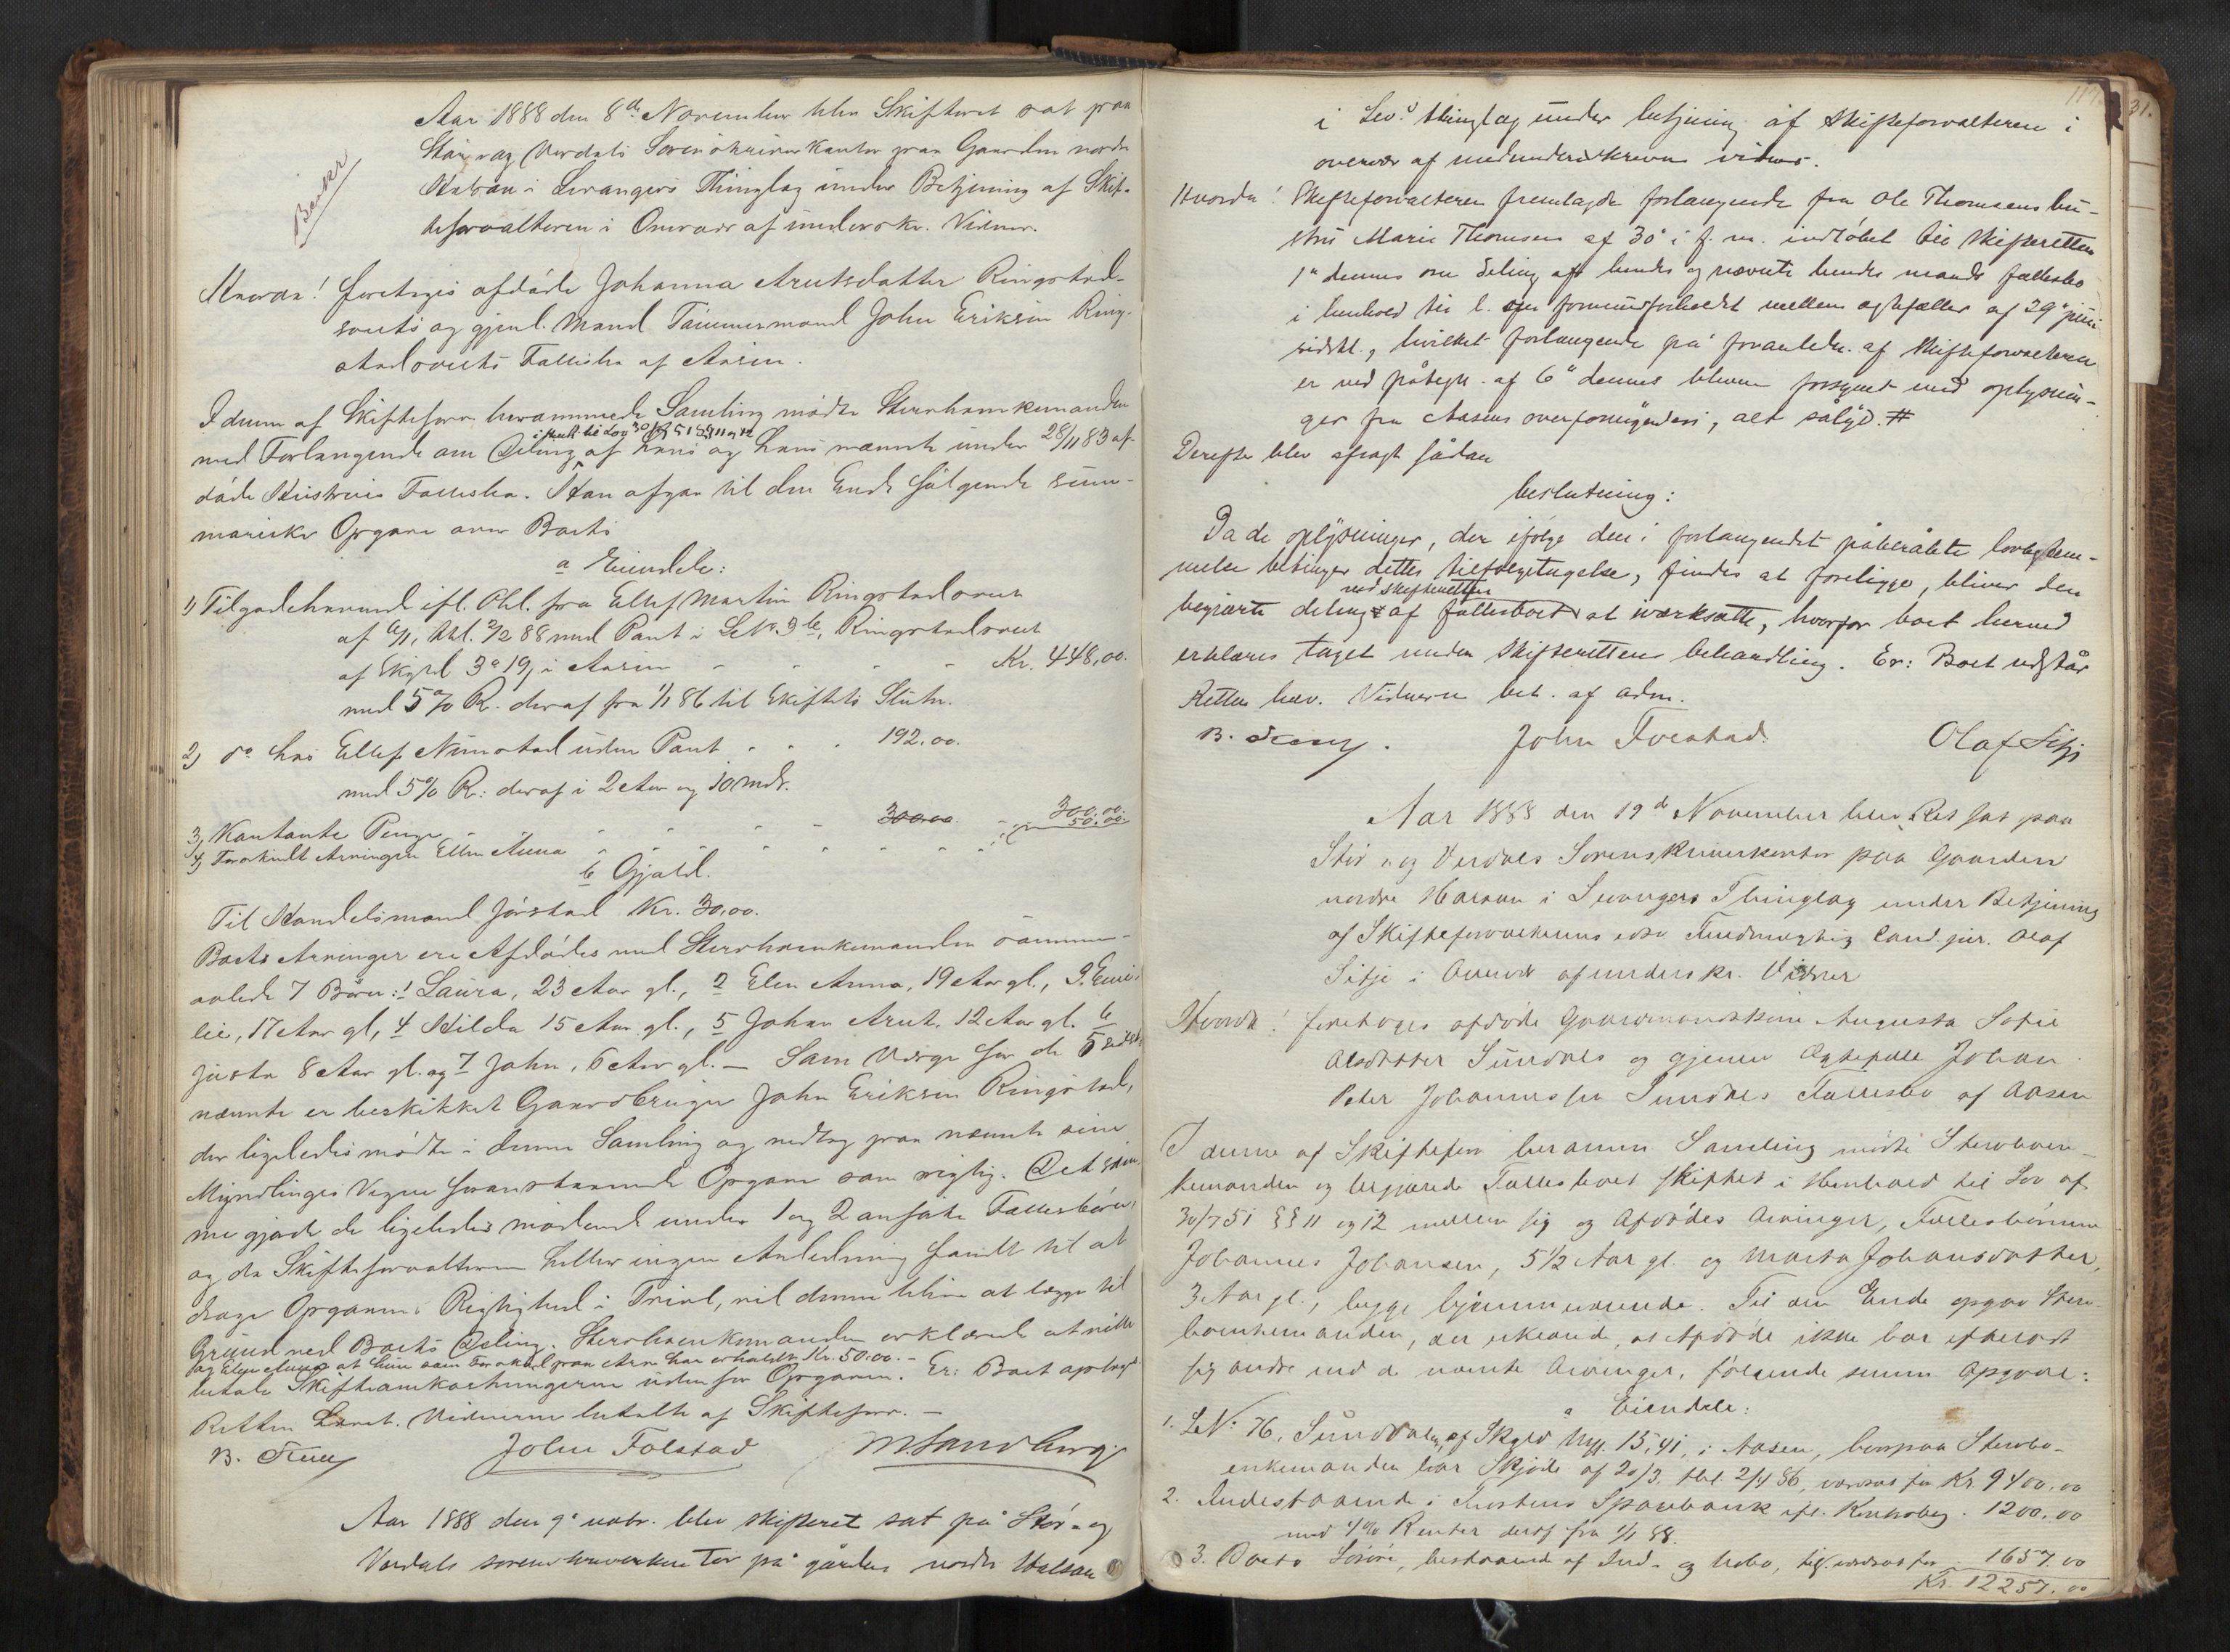 Aar 1888 den 8de November blev Skifteret sat paa
Stør- og Værdals Sorenskriverkontor paa Gaarden nordre
Halsan i Levangers Thinglag under Betjening af Skif-
teforvalteren i Overvær af underskr. Vidner.
Hvorda! foretoges afdøde Johanna Arntsdatter Ringstad-
søvets og gjenl. Mand Tømmermand John Eriksen Ring-
stadøvrets Fællesbo af Aasen.
I denne af Skifteforv. berammede Samling mødte Stervboenkemanden
i henh. til Lov 30/7 51 §§ 11 og 12
med Forlangende om Deling af hans og hans nævnte under 28/11 83 af-
døde Hustrues Fællesbo. Han afgav til den Ende følgende sum-
mariske Opgave over Boets
a Eiendele:
1) Tilgodehavend ifl. Obl. fra Ellef Martin Ringstadsøvret
af 6/1, thl. 2/2 88 med Pant i LNr. 3 b, Ringstadsøvret
af Skyld 3 o 19, i Aasen - - - - Kr. 448,00.
med 5 % R. deraf fra 1/1 86 til Skiftets Slutn.
2) do hos Ellef Nimostad uden Pant - - - 192,00.
med 5 % R: deraf i 2 Aar og 10 Mdr.
3, Kontante Penge - - - - - 300.00. - 300.00.
4) Forskudt Arvingen Ellen Anna - - - - - - 50.00.
b Gjæld.
Til Handelsmand Jørstad Kr. 30,00.
Boets Arvinger ere Afdødes med Stervboenkemanden sammen-
avlede 7 Børn: 1 Laura, 23 Aar gl., 2 Elen Anna, 19 Aar gl., 3. Emi-
lie, 17 Aar gl, 4 Hilda 15 Aar gl., 5 Johan Arnt, 12 Aar gl. 6
Justa 8 Aar gl. og 7 John, 6 Aar gl. – Som Værge for de 5 sidst-
nævnte er beskikket Gaardbruger John Eriksen Ringstad,
der ligeledes mødte i denne Samling og vedtog paa nævnte sine
Myndlinges Vegne foranstaaende Opgave som rigtig. Det sam-
me gjorde de ligeledes mødende under 1 og 2 anførte Fællesbørn,
og da Skifteforvalteren heller ingen Anledning fandt til at
drage Opgavens Rigtighed i Tvivl, vil denne blive at lægge til
Grund ved Boets Deling. Stervboenkemanden erklærede at ville
og Elen Anna at hun som Forskud paa Arv har erholdt Kr. 50.00. –
betale Skifteomkostningerne udenfor Opgaven. Er: Boet optaget
Retten hævet. Vidnerne betalte af Skifteforv. –
B. John Folstad M Sandberg
Aar 1888 den 9e novbr. blev skifteret sat på Stør- og
Værdals sorenskriverkontor på gården nordre Halsan
Banker
i Lev.s thinglag under betjening af skifteforvalteren i
overvær af medunderskrevne vidner.
Hvorda! Skifteforvalteren fremlagde forlangende fra Ole Thomsens hu-
stru Marie Thomsen af 30e i f. m. indløbet til skifteretten
1e dennes om deling af hendes og nævnte hendes mands fællesbo
i henhold til l. om formuesforholdet mellem ægtefæller af 29e juni
sidstl., hvilket forlangende på foranledn. af skifteforvalteren
er ved påtegn. af 6e dennes bleven forsynet med oplysnin-
ger fra Aasens overformynderi, alt sålyd. #
Derefter blev afsagt sådan
beslutning:
Da de oplysninger, der ifølge den i forlangendet påberåbte lovbestem-
melse betinger dettes tilfølgetagelse, findes at foreligge, bliver den
ved skifteretten
begjærte deling af fællesboet at iværksætte, hvorfor boet herved
erklæres taget under skifterettens behandling. Er: Boet udstår
Retten hæv. Vidnerne bet. af adm.
B. John Folstad. Olaf Sitje
117. 31.
Aar 1888 den 19de November blev Ret sat paa
Stør- og Værdals Sorenskriverkontor paa Gaarden
nordre Halsan i Levangers Thinglag under Betjening
af Skifteforvalterens edsv. Fuldmægtig Cand. jur. Olaf
Sitje i Overvær af underskr. Vidner
Hvorda! foretoges afdøde Gaardmandskone Augusta Sofie
Olsdatter Sundals og gjenlev. Ægtefælle Johan
Peter Johannessen Sundals Fællesbo af Aasen
I denne af Skifteforv beramm. Samling mødte Stervboen-
kemanden og begjærede Fællesboet skiftet i Henhold til Lov af
30/7 51 §§ 11 og 12 mellem sig og Afdødes Arvinger, Fællesbørnene
Johannes Johansen, 5 1/2 Aar gl. og Marta Johansdatter,
3 Aar gl., begge hjemmeværende. Til den Ende opgav Sterv-
boenkemanden, der erklærede, at Afdøde ikke har efterladt
sig andre end de nævnte Arvinger, følgende summ Opgave:
a Eiendele:
1. LNr. 76, Sunddalen, af Skyld 15,41, i Aasen, hvorpaa Stervbo-
enkemanden har Skjøde af 20/3. thl. 2/4 86, værdsat for Kr. 9400.00
2. Indestaaende i Frostens Sparebank ifl. Kontrabog - 1200.00
med 4% Renter deraf fra 1/1 88.
3. Boets Løsøre, bestaaend af Ind- og Udbo, lign. værdsat for 1657.00
Kr. 12257.00